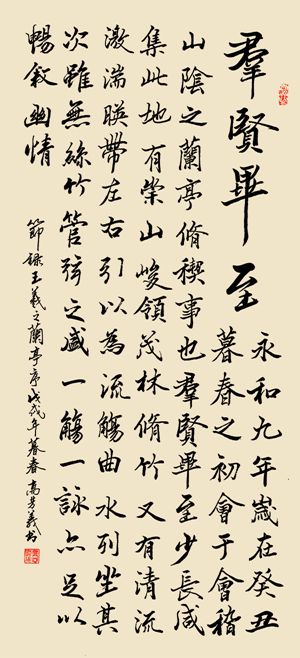 羣賢畢至
永和九年歲在癸丑
暮春之初會于會稽
山陰之蘭亭脩稧事也羣賢畢至少長咸
集此地有崇山峻領茂林脩竹又有清流
激湍暎帶左右引以為流觴曲水列坐其
次雖無絲竹管弦之盛一觴一詠亦足以
暢敘幽情
節錄王羲之蘭亭序戊戌年暮春高芳義書